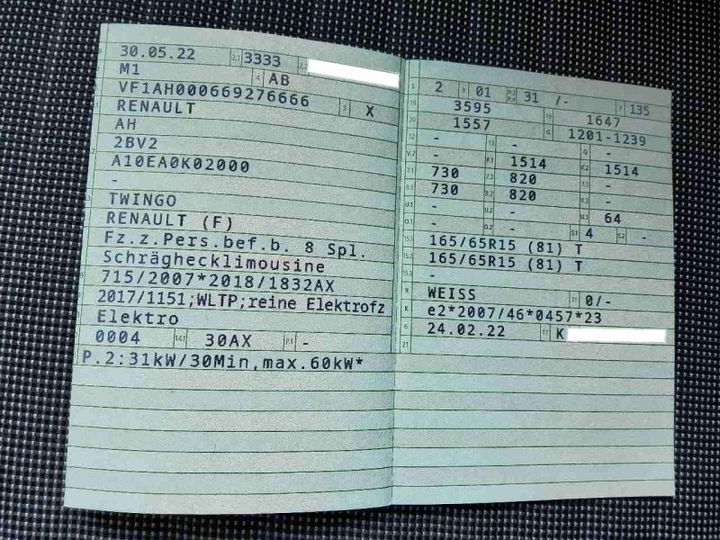 30.05.22 2.1 3333 2.2
M1 4 AB
VF1AH000669276666 3 X
RENAULT
AH
2BV2
A10EA0K02000
-
TWINGO
RENAULT (F)
Fz.z.Pers.bef.b. 8 Spl.
Schräghecklimousine
715/2007*2018/1832AX
2017/1151;WLTP;reine Elektrofz
Elektro
0004 14.1 30AX P.1 -
P.2:31kW/30Min,max.60kW*
L 2 9 01 P.2 P.4 31 /- T 135
18 3595 19 1647
20 1557 G 1201-1239
12 - 13 - Q -
V.7 - F.1 1514 F.2 1514
7.1 730 7.2 820 7.3 -
8.1 730 8.2 820 8.3 -
U.1 - U.2 - U.3 64
O.1 - O.2 - S.1 4 S.2 -
15.1 165/65R15 (81) T
15.2 165/65R15 (81) T
15.3 -
R WEISS 11 0/-
K e2*2007/46*0457*23
6 24.02.22 17 K
21